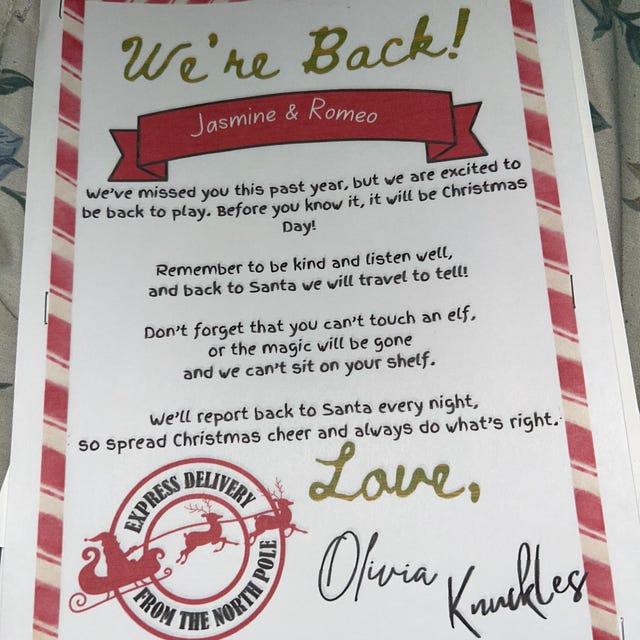 We're Back!
Jasmine & Romeo
We've missed you this past year, but we are excited to
be back to play. Before you know it, it will be Christmas
Day!
Remember to be kind and listen well,
and back to Santa we will travel to tell!
Don't forget that you can't touch an elf,
or the magic will be gone
and we can't sit on your shelf.
We'll report back to Santa every night,
so spread Christmas cheer and always do what's right.
Love,
EXPRESS DELIVERY
FROM THE NORTH POLE
Olivia
Knuckles